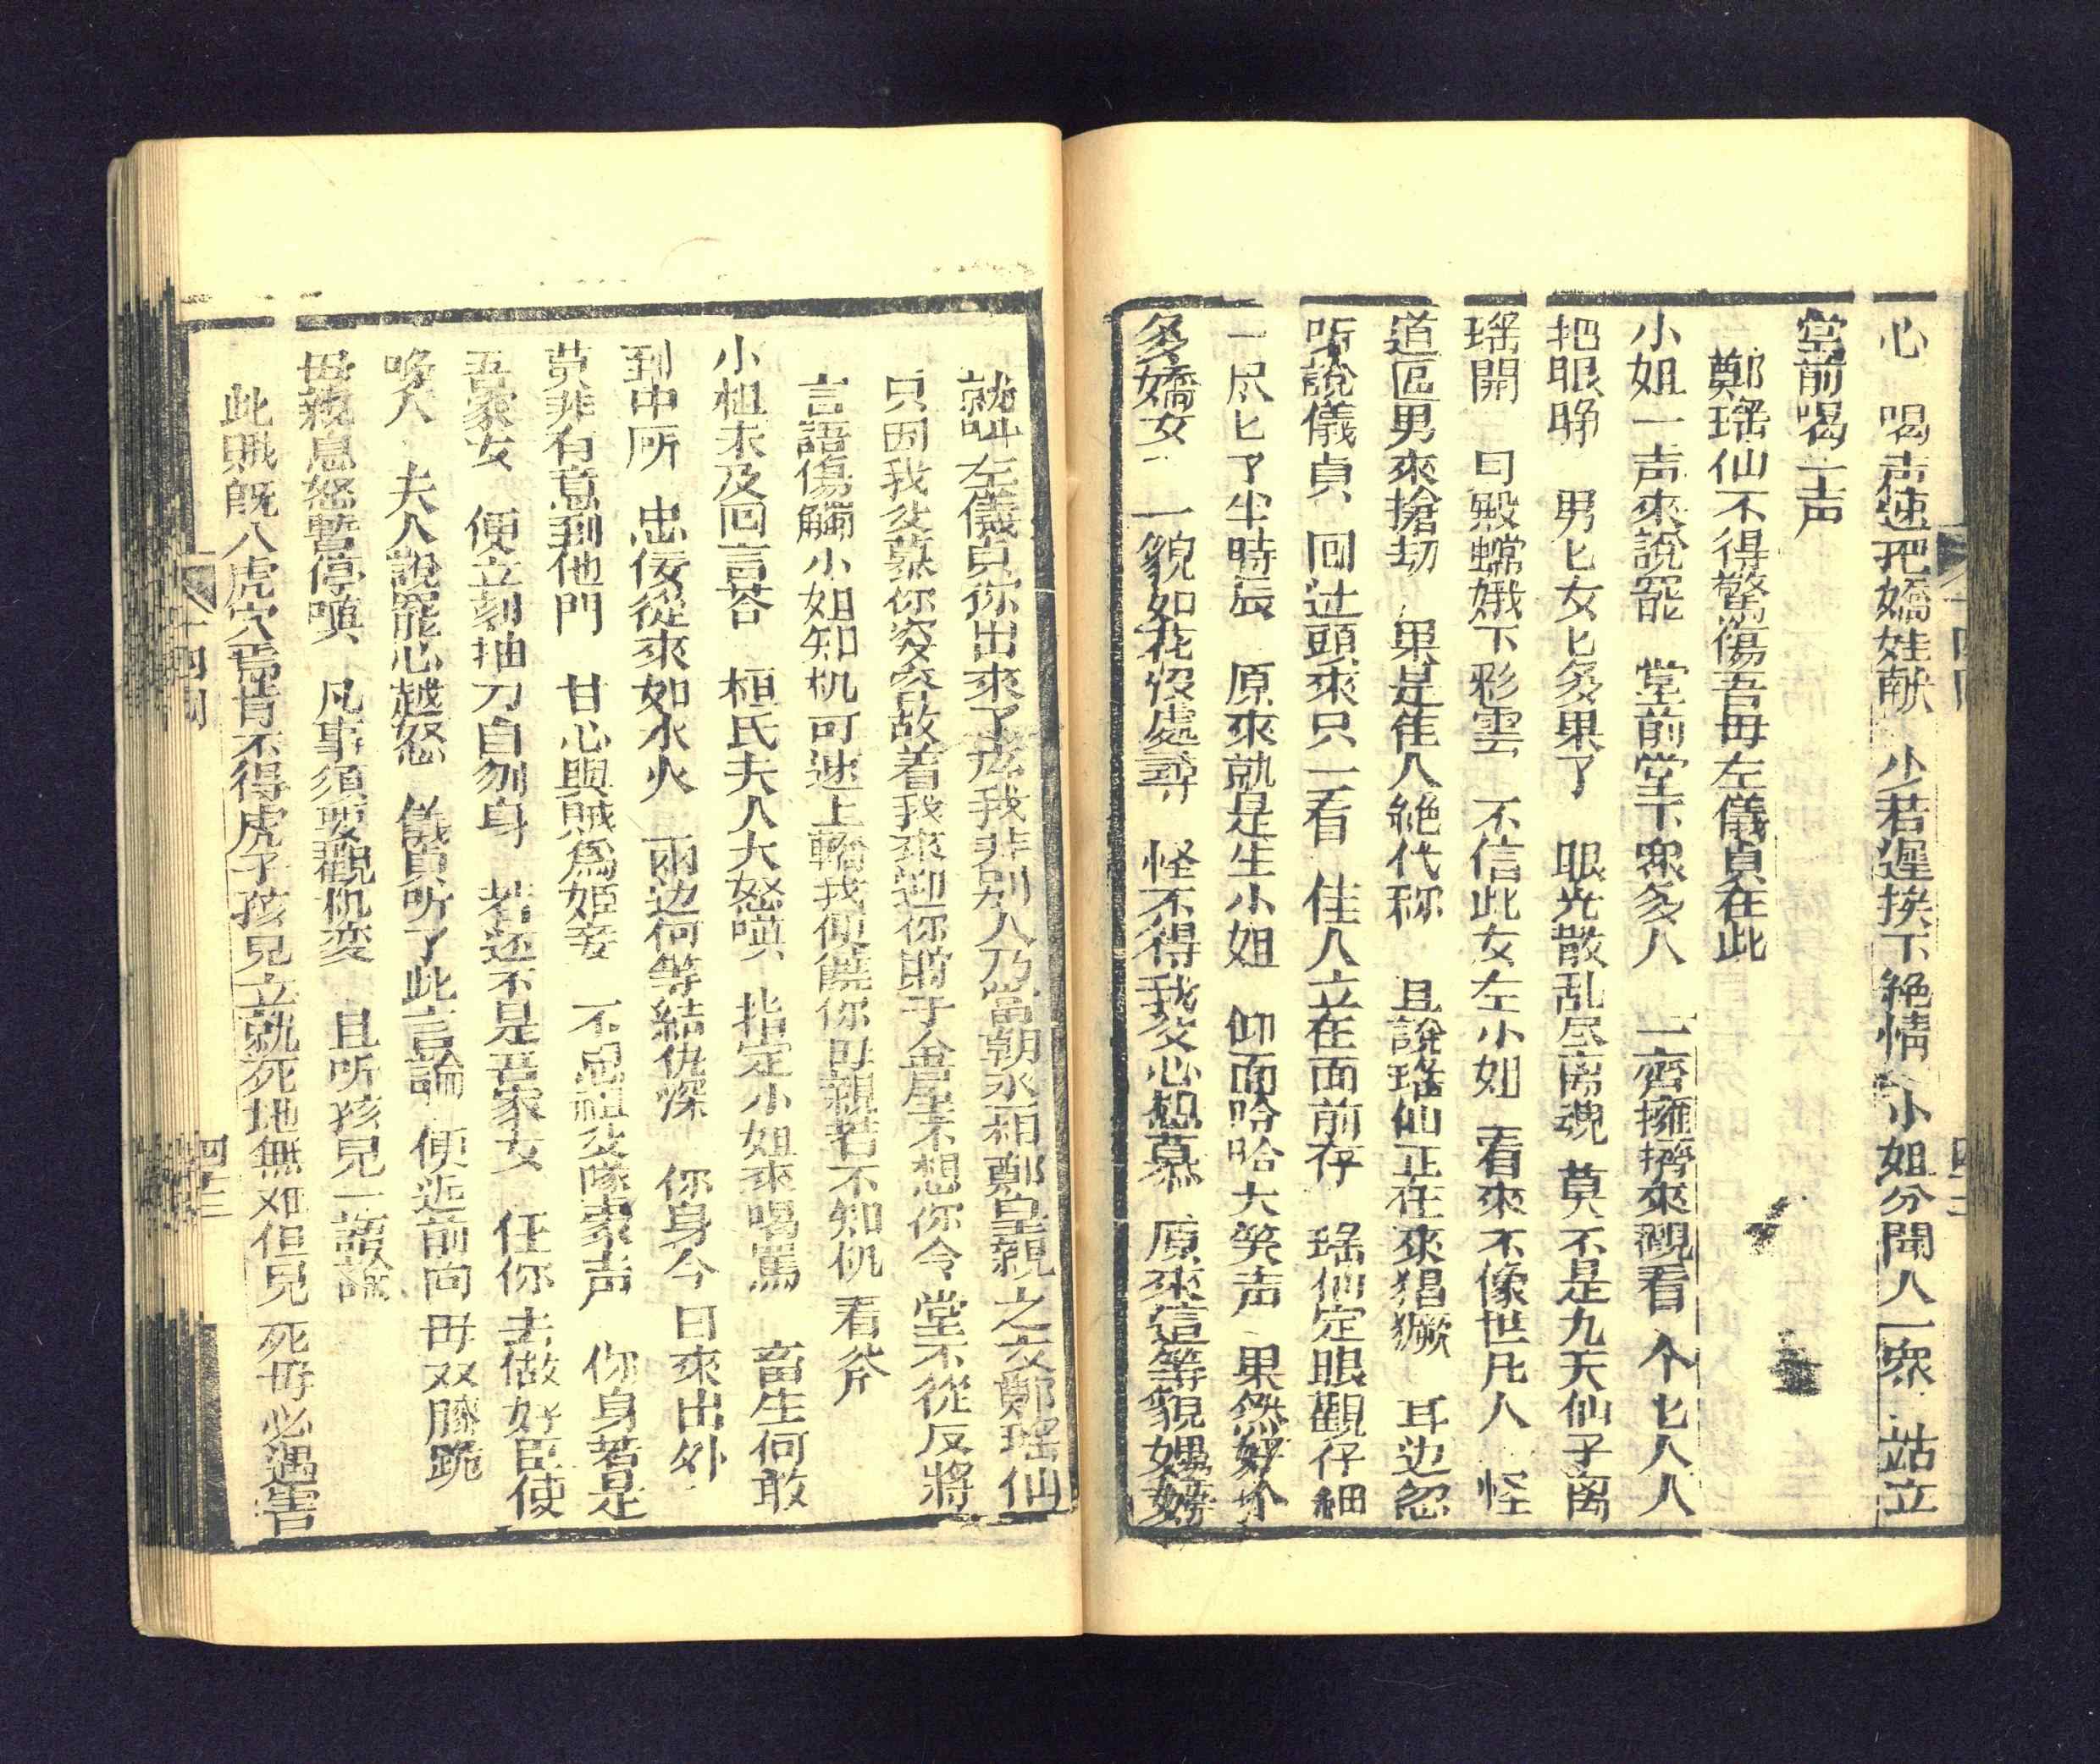 心 喝声速把嬌娃献 少若遲挨下絶情 小姐分開人一衆 站立
堂前喝一声
鄭瑶仙不得驚傷吾毋左儀貞在此
小姐一声來說罷 堂前堂下衆多人 一齊擁擠來觀看 个匕人人
把眼睁 男匕女匕多果了 眼光散乱尽离魂 莫不是九天仙子离
瑶開 月殿嫦娥下彩雲 不信此女左小姐 看來不像世凡人 怪
道匹男來搶刧 果是隹人絶代称 且說瑶仙正在來猖獗 耳边忽
听說儀貞 回过頭來只一看 佳人立在面前存 瑶仙定眼觀仔細
一尽匕了半時辰 原來就是左小姐 仰面哈哈大笑声 果然好个
多嬌女 一貌如花没處尋 怪不得我父心想慕 原來這等貌
就叫左儀貞你出來了広我非别人乃當朝丞相鄭皇親之女鄭瑶仙
只因我父慕你姿容故着我來迎你貯于金屋不想你令堂不從反將
言語傷觸小姐知机可速上轎我便饒你毋親若不知机看斧
小姐未及回言荅 桓氏夫人大怒嗔 指定小姐來喝罵 畜生何敢
到中所 忠佞從來如水火 兩边何等結仇深 你身今日來出外
莫非有意到他門 甘心與賊爲姬妾 不思祖父隊家声 你身若是
吾家女 便立刻抽刀自刎身 若还不是吾家女 任你去做好臣使
喚人 夫人說罷心越怒 儀貞听了此言論 便近前向毋双膝跪
毋親息怒暫停嗔 凡事須要觀机变 且听孩兒一語
此賊旣入虎穴焉肯不得虎子孩兒立就死地無难但兒死毋必遇害
十四回
四三